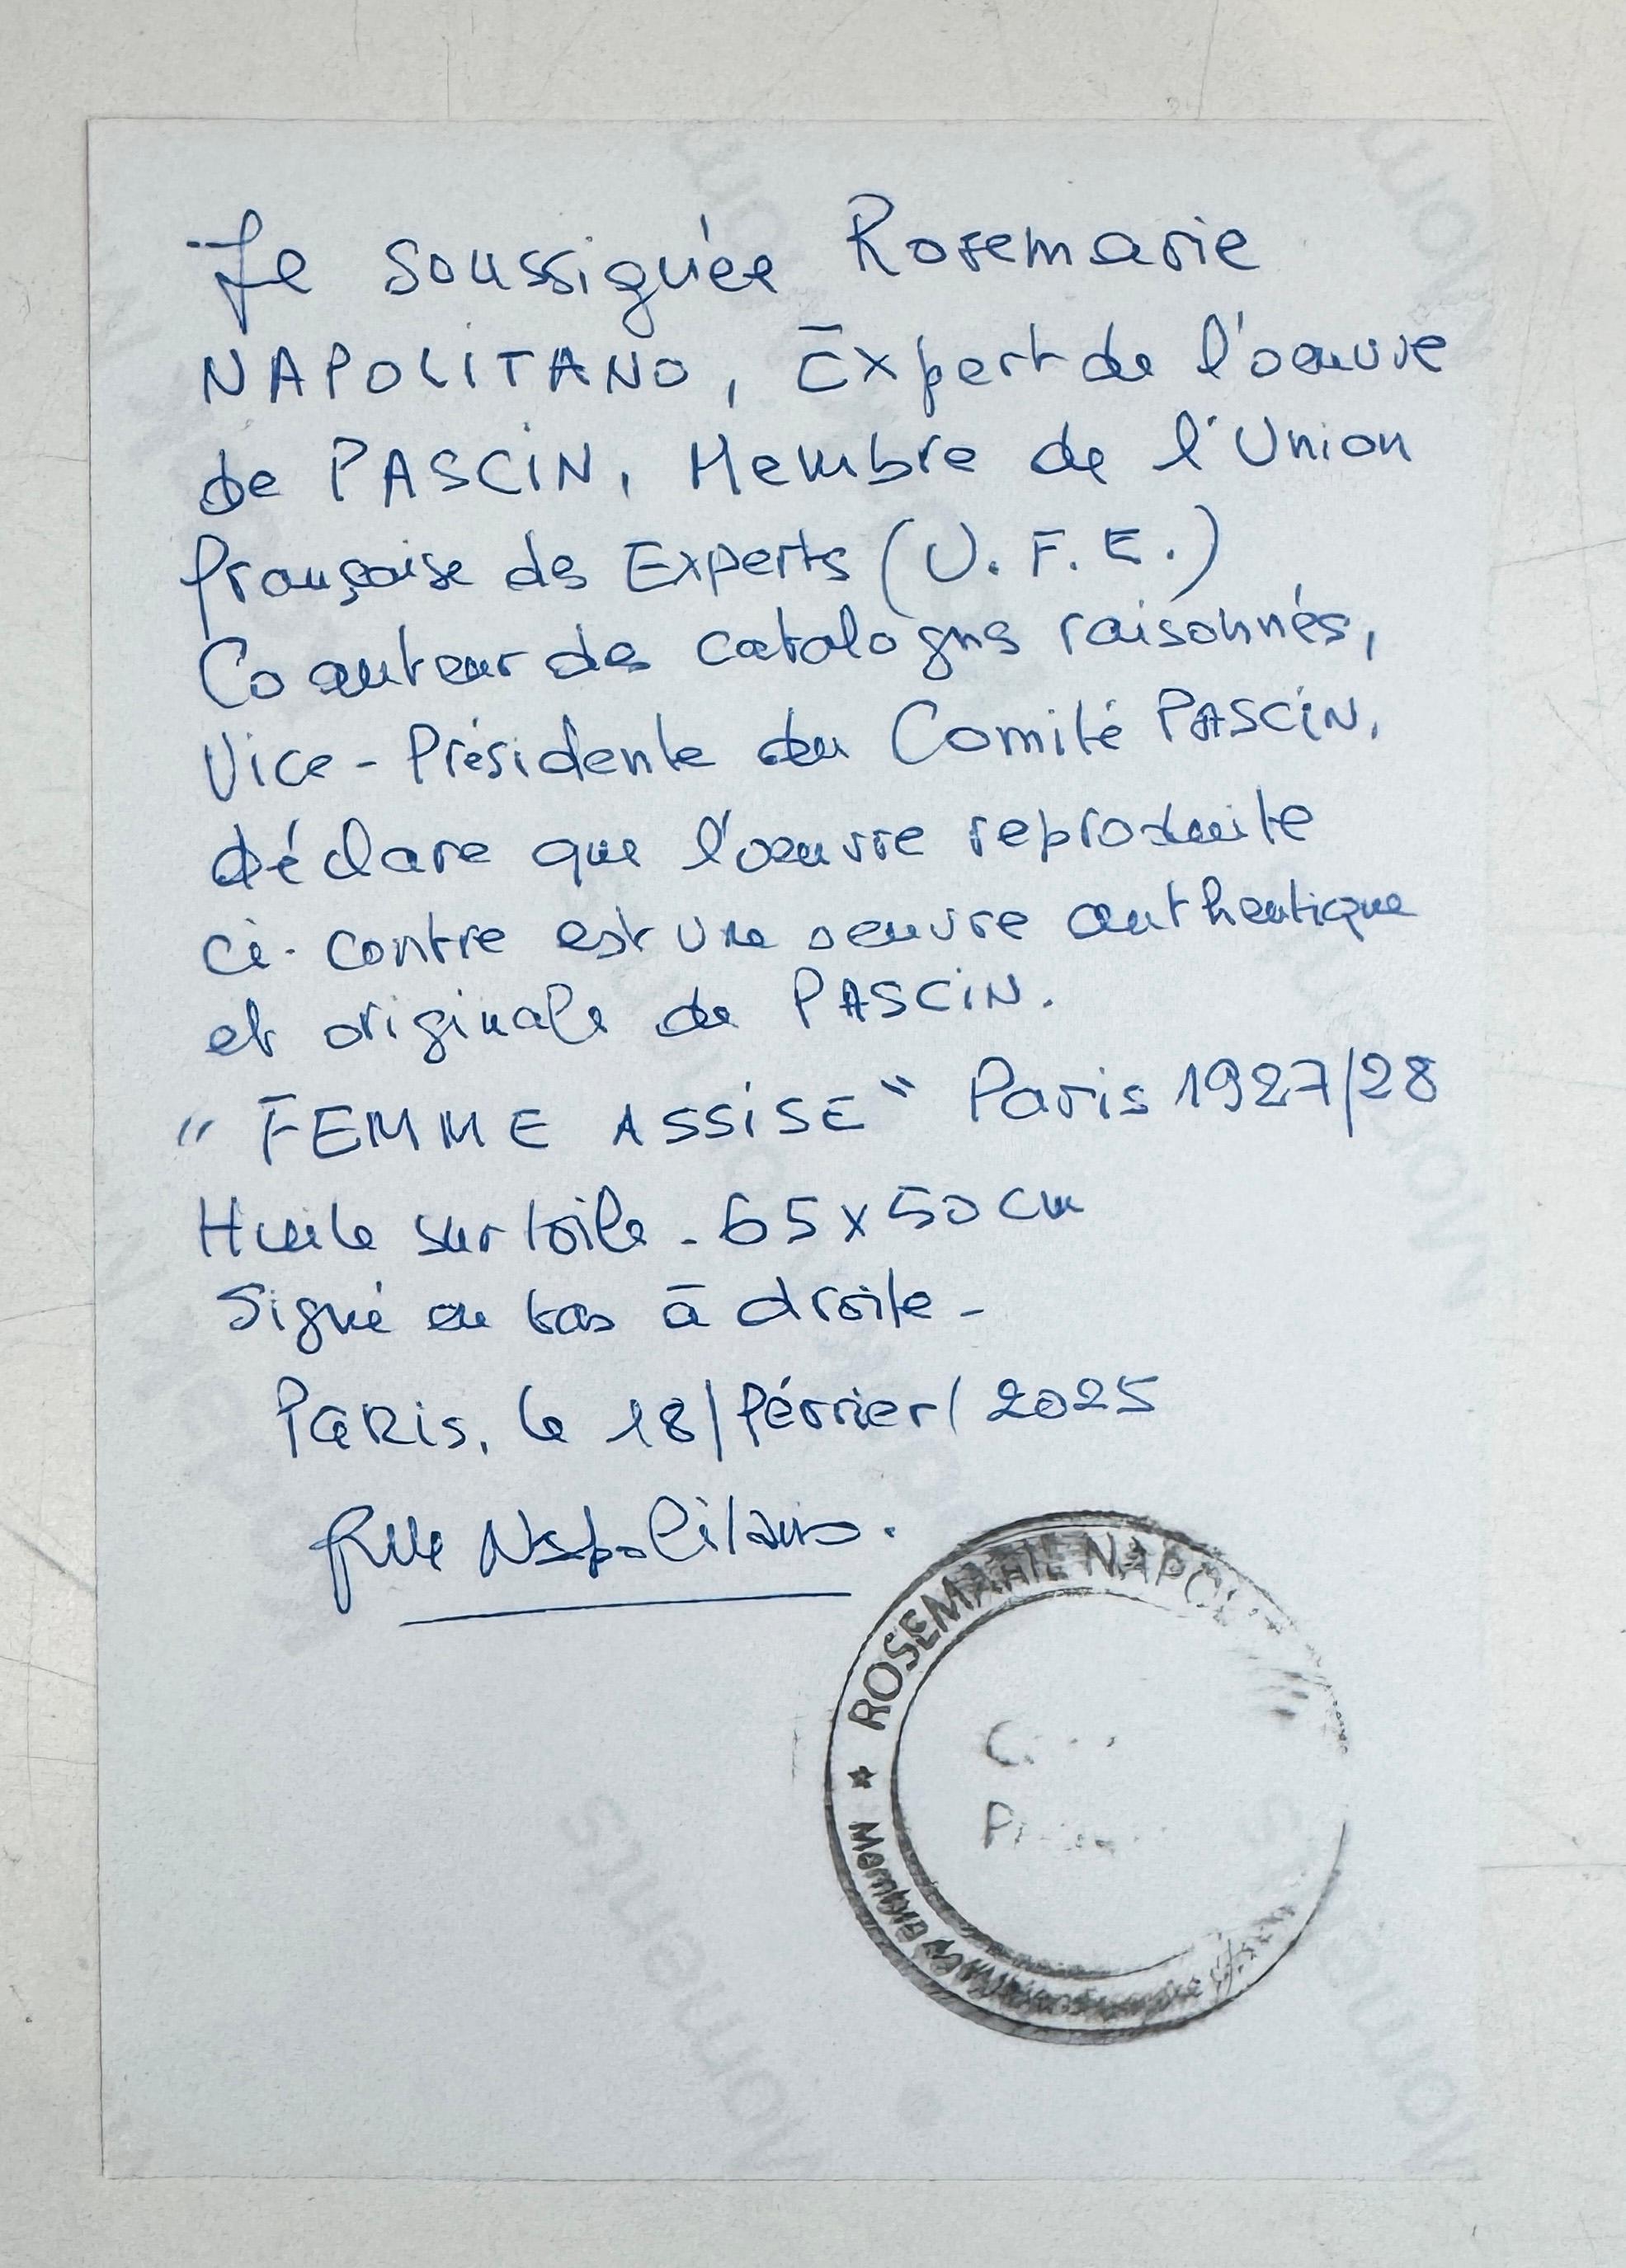 Je soussignée Rosemarie
NAPOLITANO, Expert de l'oeuvre
de PASCIN, Membre de l'Union
française des Experts (U.F.E.)
Coauteur des catalogues raisonnés,
Vice-Présidente du Comité PASCIN,
déclare que l'oeuvre reproduite
ci-contre est une oeuvre authentique
et originale de PASCIN.
"FEMME ASSISE" Paris 1927/28
Huile sur toile - 65x50 cm
Signé en bas à droite -
PARIS, le 18/février/2025
Napolitano.
★ ROSEMARIE
Membre